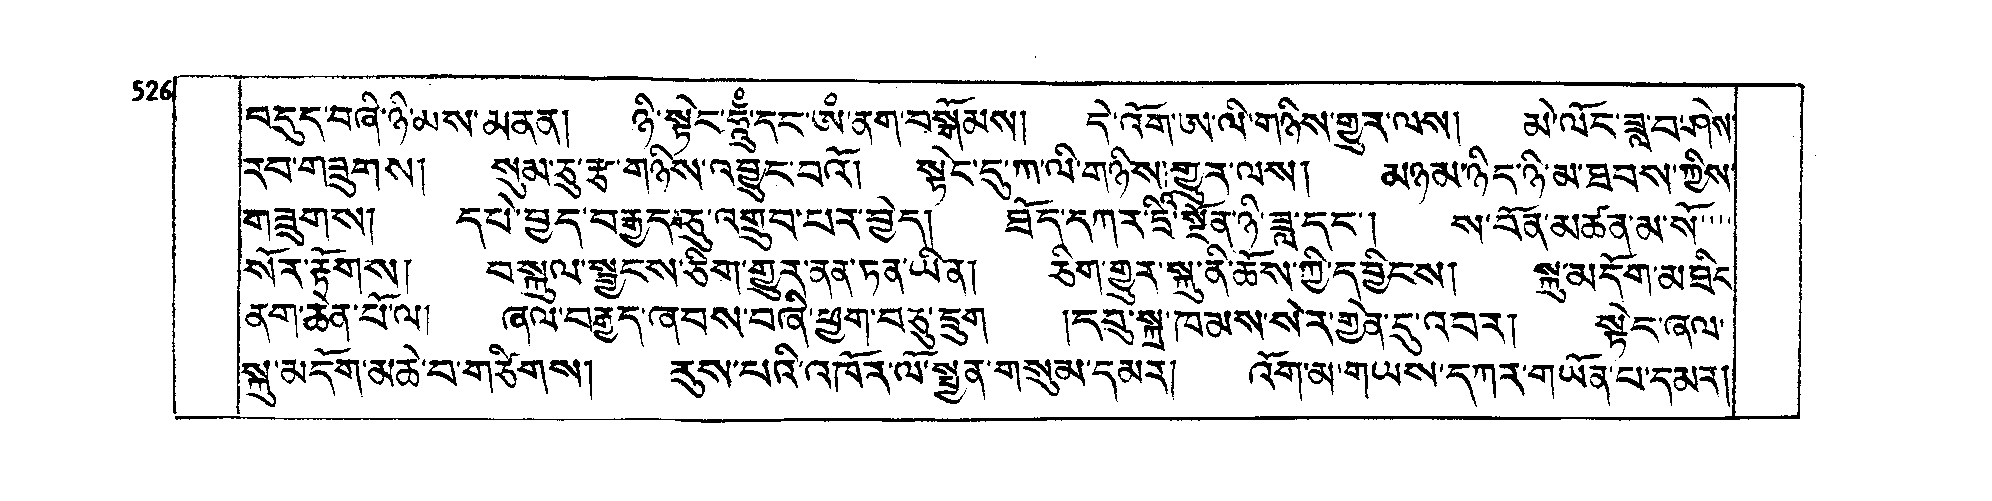 526
བདུད་བཞི་ཉི་མས་མནན། ཉི་སྟེང་ཧཱུྃ་དང་ཨཾ་ནག་བསྒོམས། དེ་འོག་ཨ་ལི་གཉིས་གྱུར་ལས། མེ་ལོང་ཟླ་བ་ཤེས
རབ་གཟུགས། སུམ་ཅུ་རྩ་གཉིས་འབྱུང་བའོ། སྟེང་དུ་ཀ་ལི་གཉིས་གྱུར་ལས། མཉམ་ཉིད་ཉི་མ་ཐབས་ཀྱིས
གཟུགས། དཔེ་བྱད་བརྒྱད་ཅུ་འགྲུབ་པར་བྱེད། ཐོད་དཀར་ སྔོན་ཉི་ཟླ་དང་། ས་བོན་མཚན་མ་སོ
སོར་རྟོགས། བསྐུལ་སྦྱངས་ཅིག་གྱུར་ནན་ཏན་ཡིན། ཅིག་གྱུར་སྐུ་ནི་ཆོས་ཀྱི་དབྱིངས། སྐུ་མདོག་མཐིང
ནག་ཆེན་པོ་ལ། ཞལ་བརྒྱད་ཞབས་བཞི་ཕྱག་བཅུ་དྲུག །དབུ་སྐྲ་ཁམས་སེར་གྱེན་དུ་འབར། སྟེང་ཞལ་
སྐུ་མདོག་མཆེ་བ་གཙིགས། རུས་པའི་འཁོར་ལོ་སྤྱན་གསུམ་དམར། འོག་མ་གཡས་དཀར་གཡོན་པ་དམར།